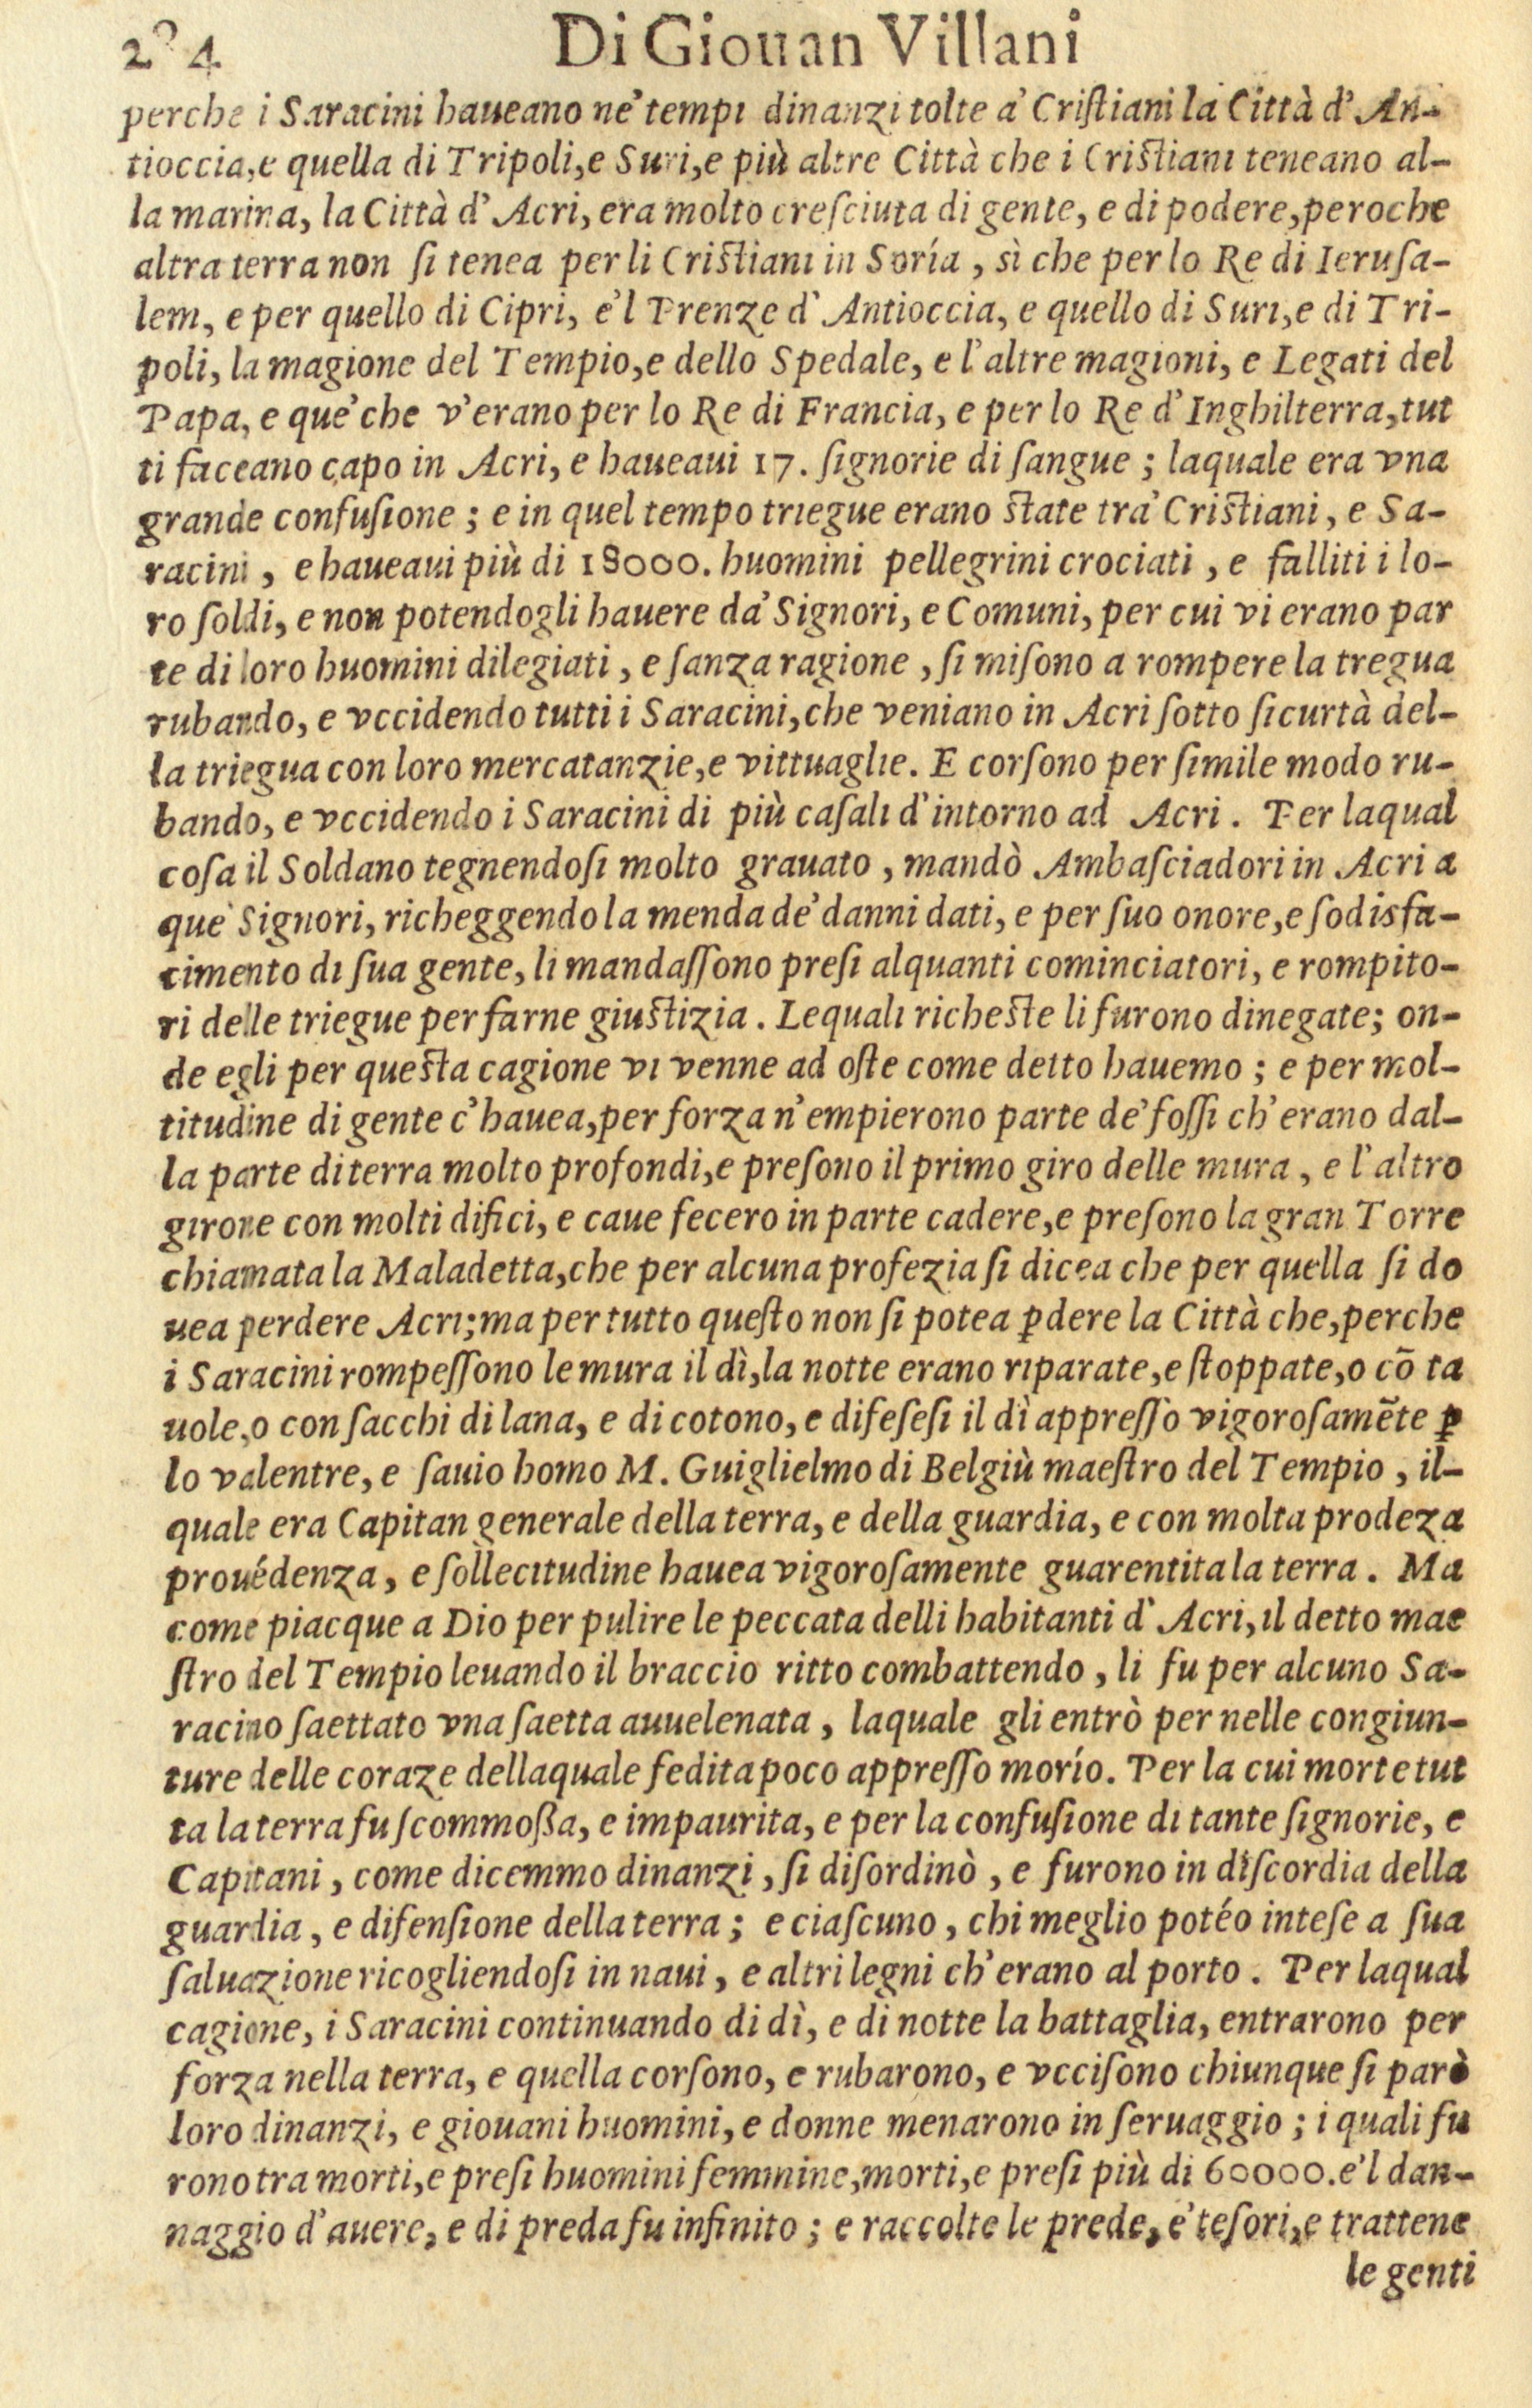 204 Di Giouan Villani
perche i Saracini haueano ne' tempi dinanzi tolte a' Criſtiani la Città d' An-
tioccia,e quella di Tripoli,e Suri,e più altre Città che i Criſtiani teneano al-
la marina, la Città d' Acri, era molto creſciuta di gente, e di podere,peroche
altra terra non ſi tenea per li Criſtiani in Soría , sì che per lo Re di Ieruſa-
lem, e per quello di Cipri, e'l Prenze d' Antioccia, e quello di Suri,e di Tri-
poli, la magione del Tempio,e dello Spedale, e l'altre magioni, e Legati del
Papa, e que' che v'erano per lo Re di Francia, e per lo Re d' Inghilterra,tut
ti faceano capo in Acri, e haueaui 17. ſignorie di ſangue ; laquale era vna
grande confuſione ; e in quel tempo triegue erano ſtate tra' Criſtiani, e Sa-
racini , e haueaui più di 18000. huomini pellegrini crociati , e falliti i lo-
ro ſoldi, e non potendogli hauere da' Signori, e Comuni, per cui vi erano par
te di loro huomini dilegiati , e ſanza ragione , ſi miſono a rompere la tregua
rubando, e vccidendo tutti i Saracini,che veniano in Acri ſotto ſicurtà del-
la triegua con loro mercatanzie,e vittuaglie. E corſono per ſimile modo ru-
bando, e vccidendo i Saracini di più caſali d'intorno ad Acri . Per laqual
coſa il Soldano tegnendoſi molto grauato , mandò Ambaſciadori in Acri a
que' Signori, richeggendo la menda de' danni dati, e per ſuo onore,e ſodisfa-
cimento di ſua gente, li mandaſſono preſi alquanti cominciatori, e rompito-
ri delle triegue per farne giuſtizia . Lequali richeſte li furono dinegate; on-
de egli per queſta cagione vi venne ad oſte come detto hauemo ; e per mol-
titudine di gente c'hauea,per forza n'empierono parte de' foſſi ch'erano dal-
la parte di terra molto profondi,e preſono il primo giro delle mura , e l'altro
girone con molti difici, e caue fecero in parte cadere,e preſono la gran Torre
chiamata la Maladetta,che per alcuna profezia ſi dicea che per quella ſi do
uea perdere Acri;ma per tutto queſto non ſi potea ꝑdere la Città che,perche
i Saracini rompeſſono le mura il dì,la notte erano riparate,e ſtoppate,o cō ta
uole,o con ſacchi di lana, e di cotono, e difeſeſi il dì appreſſo vigoroſamẽte ꝑ
lo valentre, e ſauio homo M. Guiglielmo di Belgiù maeſtro del Tempio , il-
quale era Capitan generale della terra, e della guardia, e con molta prodeza
prouédenza , e ſollecitudine hauea vigoroſamente guarentita la terra . Ma
come piacque a Dio per pulire le peccata delli habitanti d' Acri,il detto mae
ſtro del Tempio leuando il braccio ritto combattendo , li fu per alcuno Sa-
racino ſaettato vna ſaetta auuelenata , laquale gli entrò per nelle congiun-
ture delle coraze dellaquale fedita poco appreſſo morío. Per la cui morte tut
ta la terra fu ſcommoßa, e impaurita, e per la confuſione di tante ſignorie, e
Capitani , come dicemmo dinanzi , ſi diſordinò , e furono in diſcordia della
guardia , e difenſione della terra ; e ciaſcuno , chi meglio potéo inteſe a ſua
ſaluazione ricogliendoſi in naui , e altri legni ch'erano al porto . Per laqual
cagione, i Saracini continuando di dì, e di notte la battaglia, entrarono per
forza nella terra, e quella corſono, e rubarono, e vcciſono chiunque ſi parò
loro dinanzi, e giouani huomini, e donne menarono in ſeruaggio ; i quali fu
rono tra morti,e preſi huomini femmine,morti,e preſi più di 60000.e'l dan-
naggio d'auere, e di preda fu infinito ; e raccolte le prede, e' teſori,e trattene
le genti